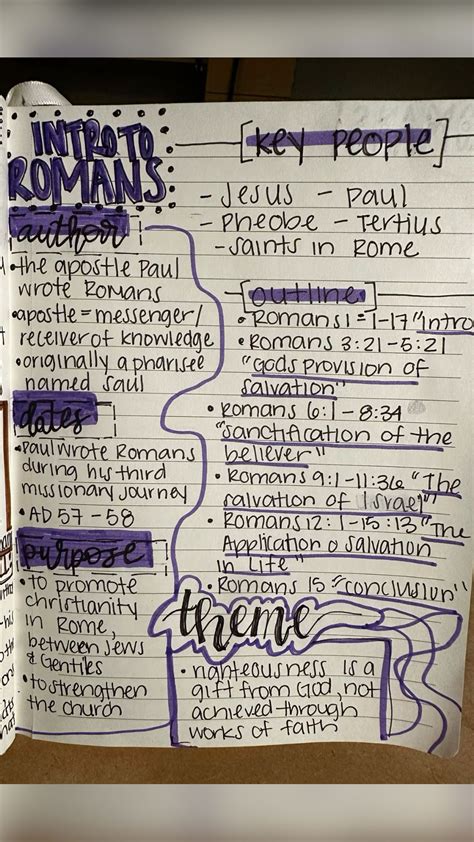 INTRO TO
ROMANS
author
•the apostle Paul
wrote Romans
•apostle = messenger/
receiver of knowledge
•originally a pharisee
named Saul
dates
•Paul wrote Romans
during his third
missionary journey
•AD 57-58
purpose
•to promote
christianity
in Rome,
between Jews
& Gentiles
•to strengthen
the church
[key people]
- Jesus - Paul
- Pheobe - Tertius
- saints in Rome
[outline]
•Romans 1=1-17 "Intro
•Romans 3:21-5:21
"Gods provision of
salvation"
•Romans 6:1-8:34
"sanctification of the
believer"
•Romans 9:1-11:36 "The
salvation of Israel"
•Romans 12:1-15:13 "The
Application o salvation
in Life"
•Romans 15 "conclusion"
theme
•righteousness is a
gift from God, not
achieved through
works of faith